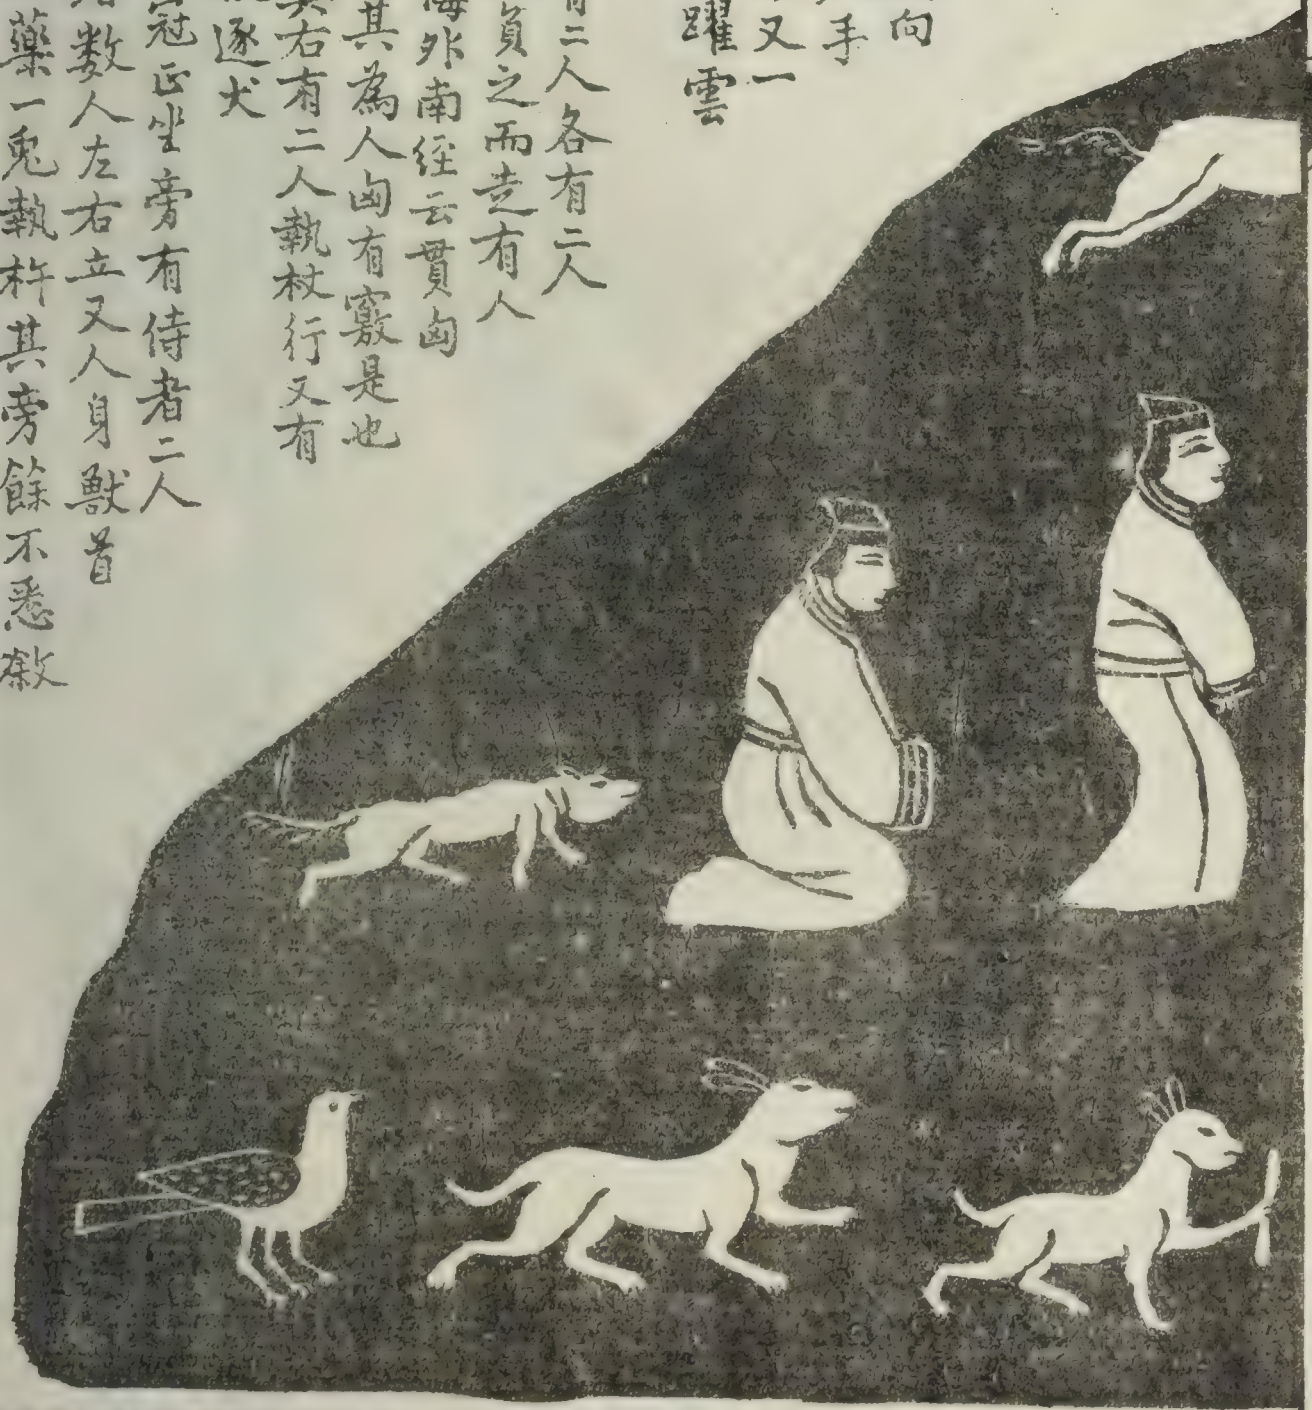 向
手
又一
躍雲
有二人各有二人
負之而走有人
海外南経云貫匈
其為人匈有竅是也
其右有二人執杖行又有
逐犬
冠正坐旁有侍者二人
数人左右立又人身獸首
藥一兎執杵其旁餘不悉